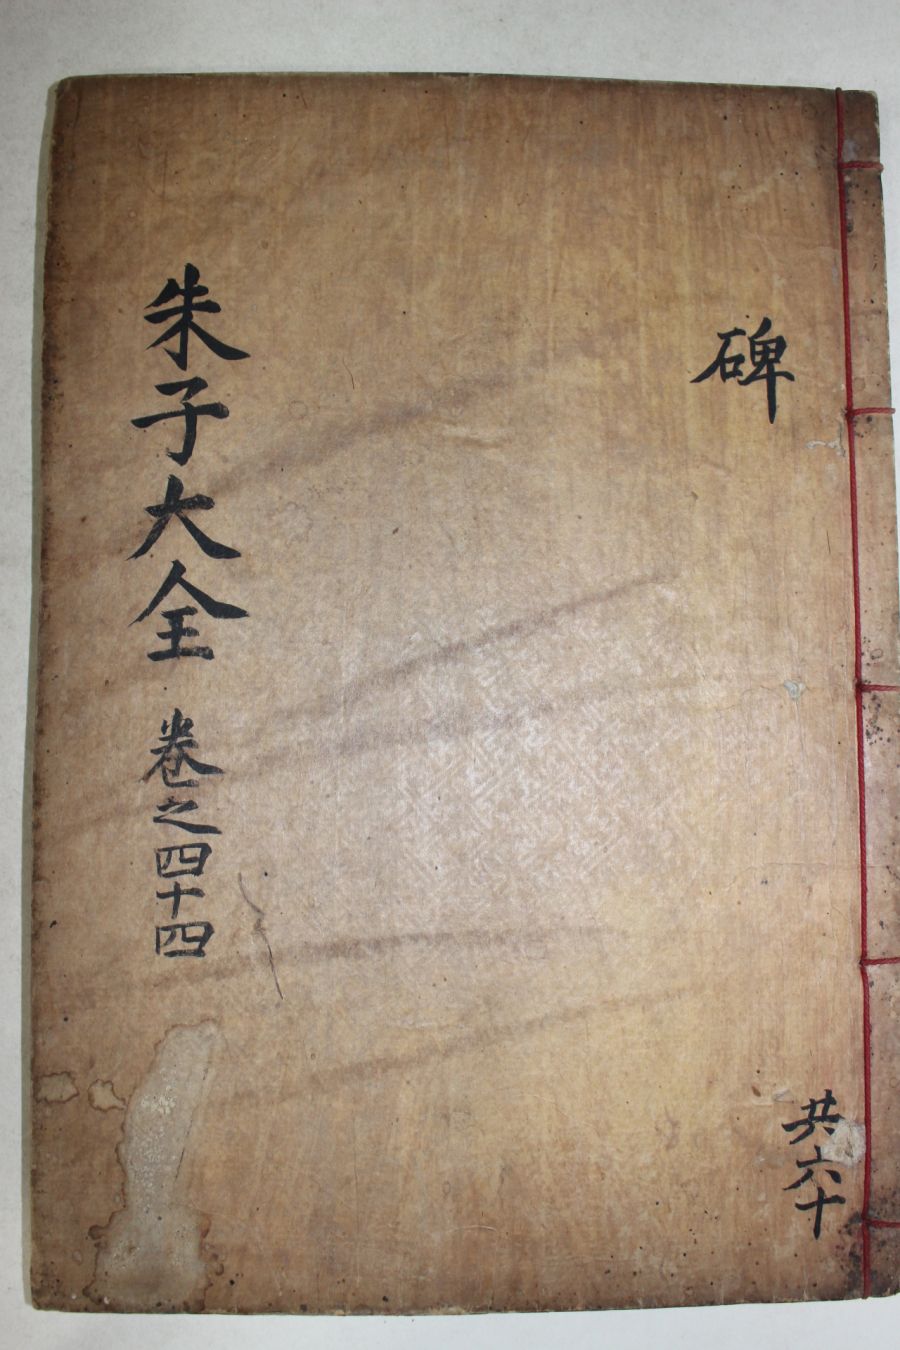 碑
共六十
朱子大全 卷之四十四